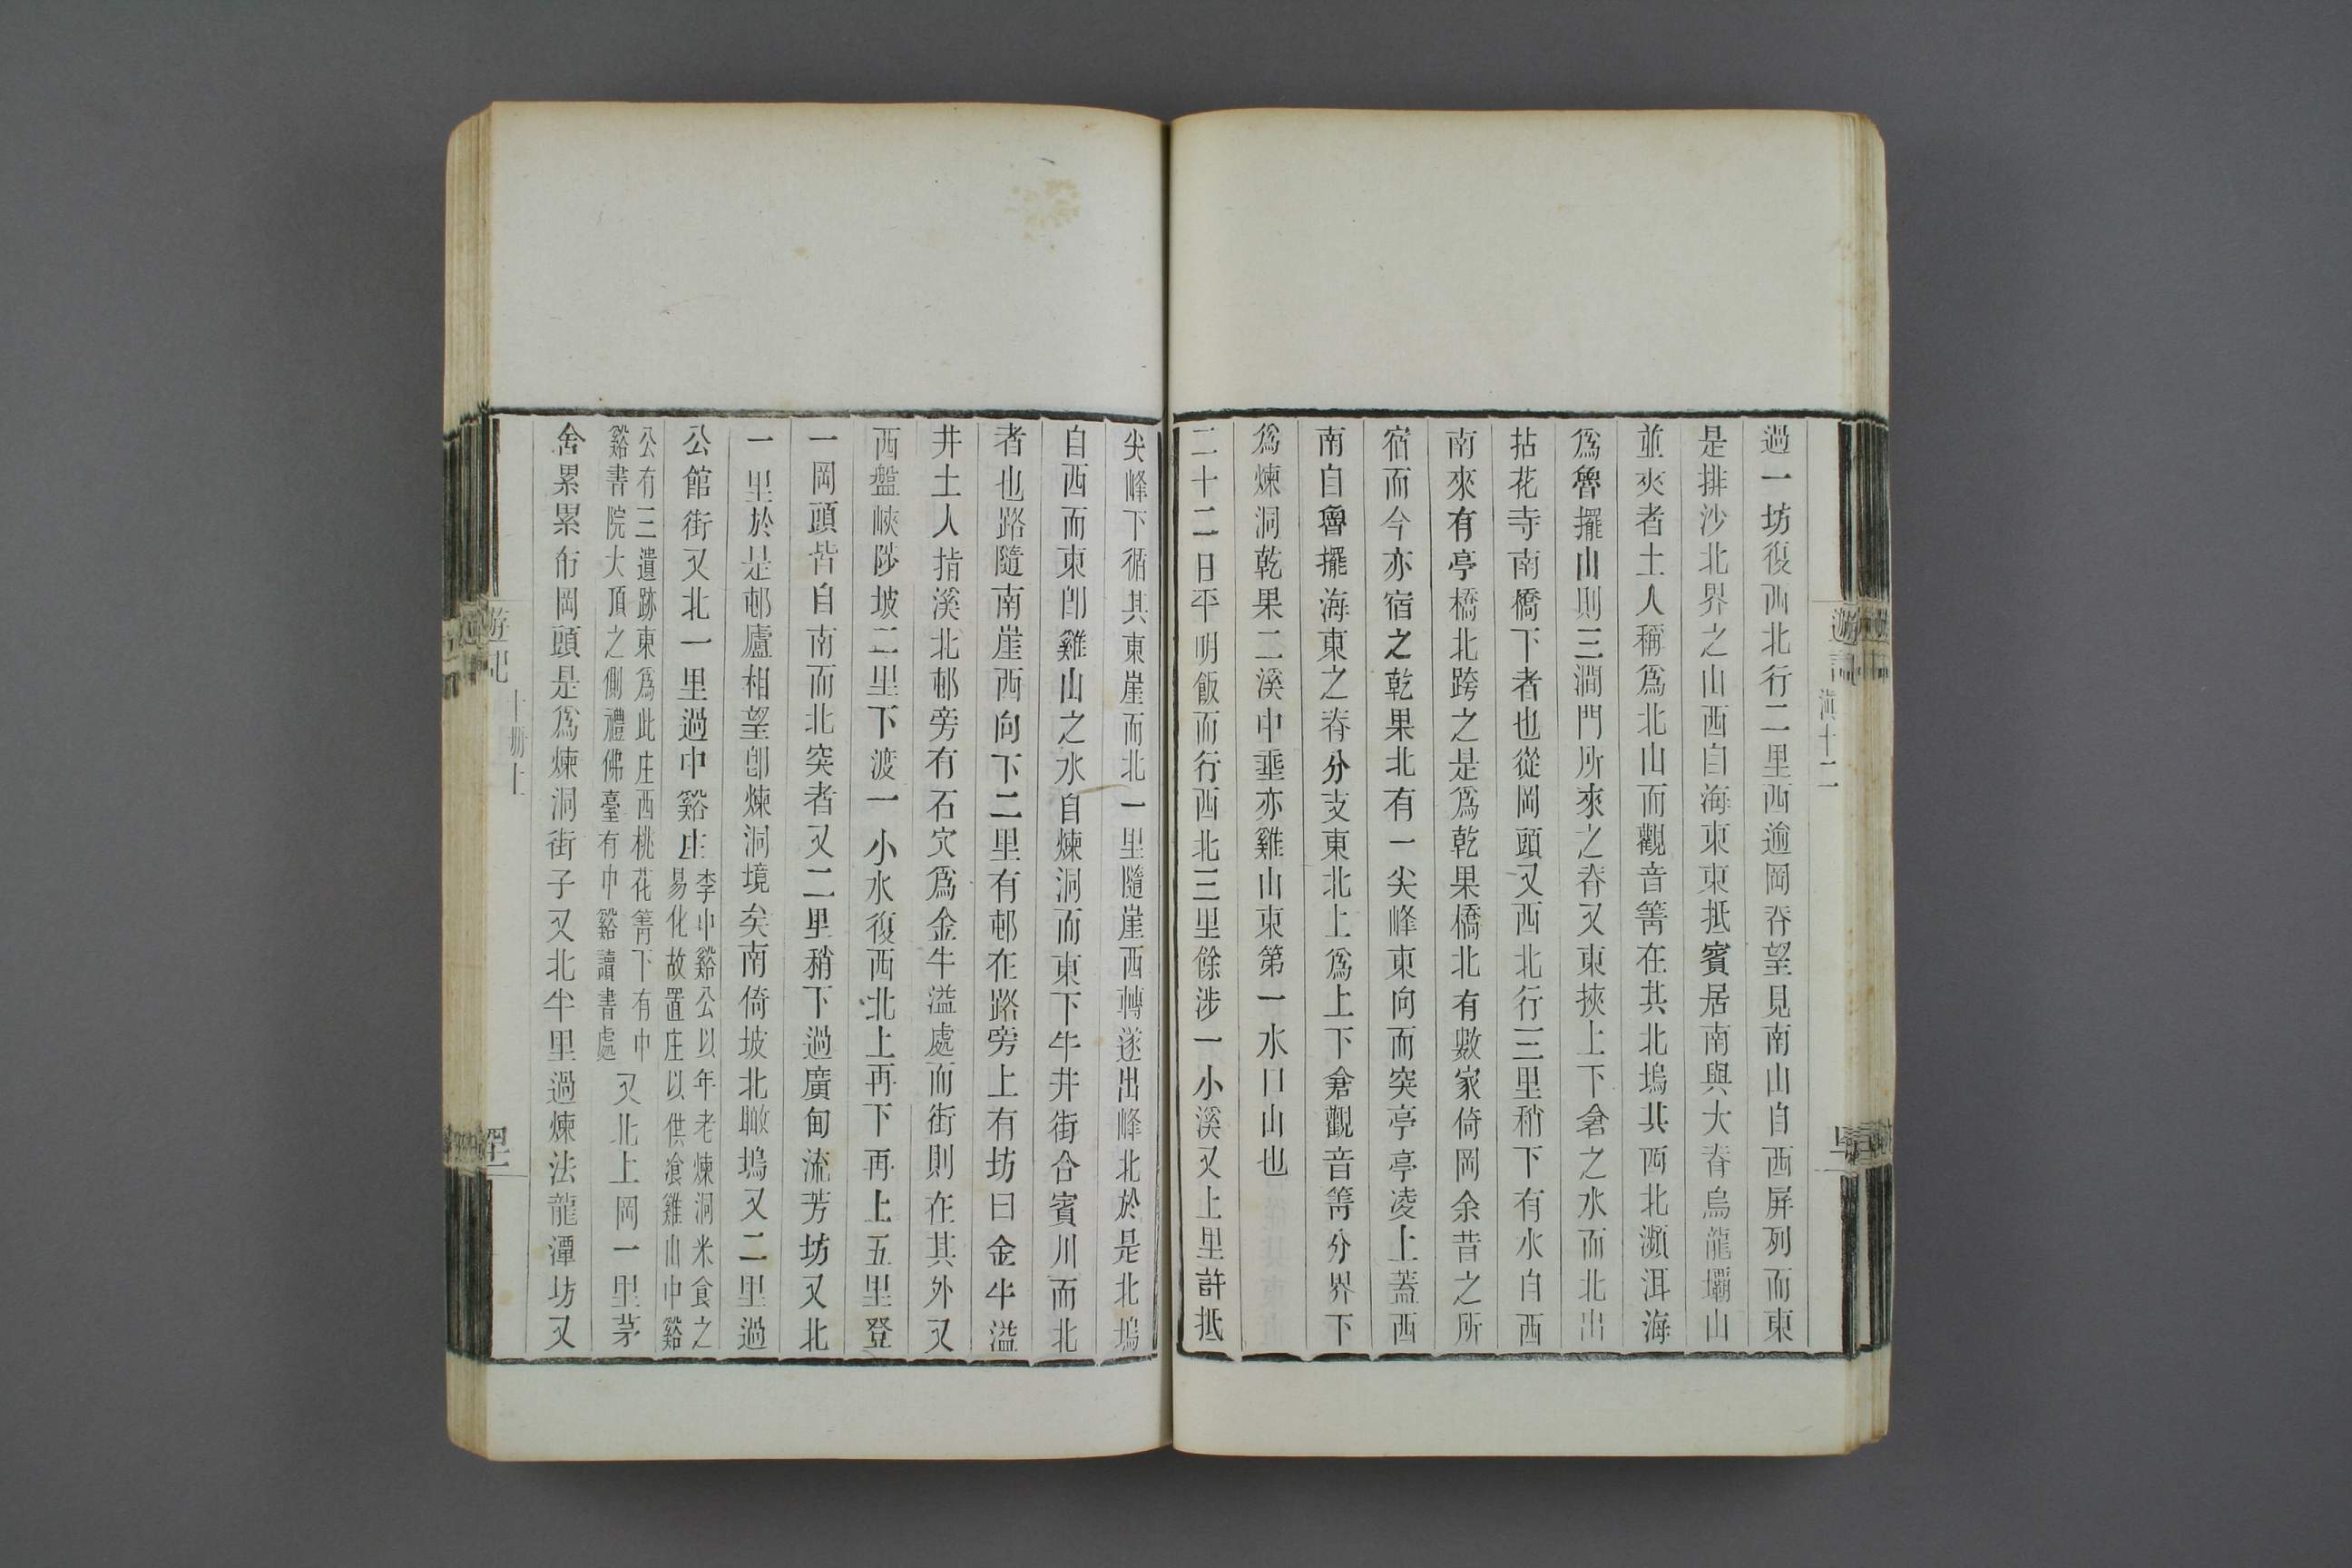 過一坊復西北行二里西逾岡脊望見南山自西屏列而東
是排沙北界之山西自海東東抵賓居南與大脊烏龍壩山
並夾者土人稱爲北山而觀音箐在其北塢其西北瀕洱海
爲魯擺山則三澗門所來之脊又東挾上下倉之水而北出
拈花寺南橋下者也從岡頭又西北行三里稍下有水自西
南來有亭橋北跨之是爲乾果橋北有數家倚岡余昔之所
宿而今亦宿之乾果北有一尖峰東向而突亭亭凌上蓋西
南自魯擺海東之脊分支東北上爲上下倉觀音箐分界下
爲煉洞乾果二溪中垂亦雞山東第一水口山也
二十二日平明飯而行西北三里餘涉一小溪又上里許抵
遊記
滇十二
尖峰下循其東崖而北一里隨崖西轉遂出峰北於是北塢
自西而東卽雞山之水自煉洞而東下牛井街合賓川而北
者也路隨南崖西向下二里有邨在路旁上有坊曰金牛溢
井土人指溪北邨旁有石穴爲金牛溢處而街則在其外又
西盤峽陟坡二里下渡一小水復西北上再下再上五里登
一岡頭皆自南而北突者又二里稍下過廣甸流芳坊又北
一里於是邨廬相望卽煉洞境矣南倚坡北瞰塢又二里過
公館街又北一里過中谿庄李中谿公以年老煉洞米食之
易化故置庄以供飡雞山中谿
公有三遺跡東爲此庄西桃花箐下有中
谿書院大頂之側禮佛臺有中谿讀書處又北上岡一里茅
舍累累布岡頭是爲煉洞街子又北半里過煉法龍潭坊又
遊記
十冊上